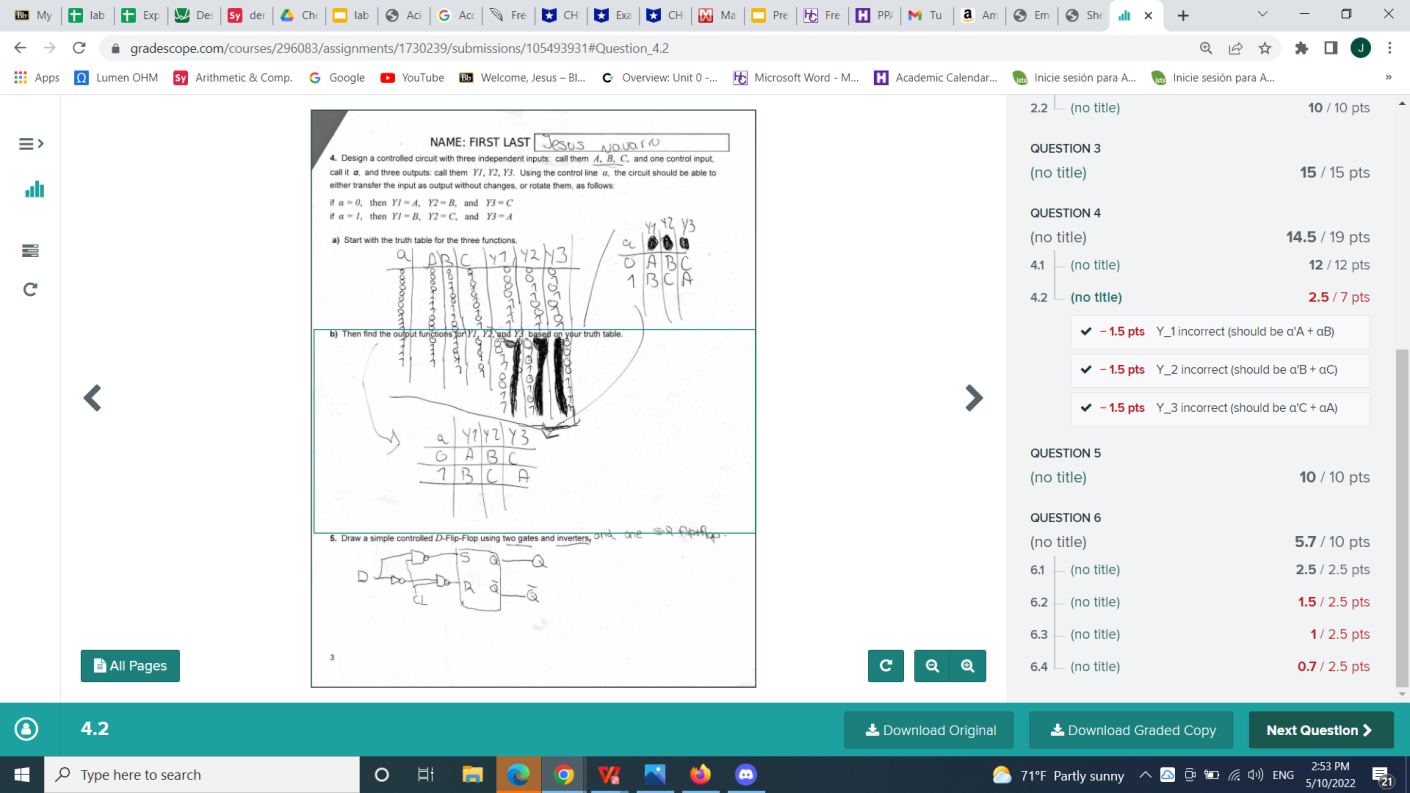 My
lab
Exp
Des
der
Che
lab
Aci
Acc
Fre
CH
Exa
CH
Ma
Pre
Fre
PPA
Tu
Am
Em
She
gradescope.com/courses/296083/assignments/1730239/submissions/105493931#Question_4.2
J
Apps Lumen OHM Arithmetic & Comp. Google YouTube Welcome, Jesus – Bl... Overview: Unit 0 -... Microsoft Word - M... Academic Calendar... Inicie sesión para A... Inicie sesión para A... »
NAME: FIRST LAST Jesus Navarro
4. Design a controlled circuit with three independent inputs: call them A, B, C, and one control input,
call it α, and three outputs: call them Y1, Y2, Y3. Using the control line α, the circuit should be able to
either transfer the input as output without changes, or rotate them, as follows:
if α = 0, then Y1 = A, Y2 = B, and Y3 = C
if α = 1, then Y1 = B, Y2 = C, and Y3 = A
Y1 Y2 Y3
a
0 A B C
1 B C A
a) Start with the truth table for the three functions.
a A B C Y1 Y2 Y3
b) Then find the output functions for Y1, Y2, and Y3 based on your truth table.
a Y1 Y2 Y3
0 A B C
1 B C A
5. Draw a simple controlled D-Flip-Flop using two gates and inverters, and one SR flipflop.
D S Q Q
CL R Q̄ Q̄
3
All Pages
2.2 (no title) 10 / 10 pts
QUESTION 3
(no title) 15 / 15 pts
QUESTION 4
(no title) 14.5 / 19 pts
4.1 (no title) 12 / 12 pts
4.2 (no title) 2.5 / 7 pts
– 1.5 pts Y_1 incorrect (should be α'A + αB)
– 1.5 pts Y_2 incorrect (should be α'B + αC)
– 1.5 pts Y_3 incorrect (should be α'C + αA)
QUESTION 5
(no title) 10 / 10 pts
QUESTION 6
(no title) 5.7 / 10 pts
6.1 (no title) 2.5 / 2.5 pts
6.2 (no title) 1.5 / 2.5 pts
6.3 (no title) 1 / 2.5 pts
6.4 (no title) 0.7 / 2.5 pts
4.2 Download Original Download Graded Copy Next Question
Type here to search
71°F Partly sunny
ENG
2:53 PM
5/10/2022
21